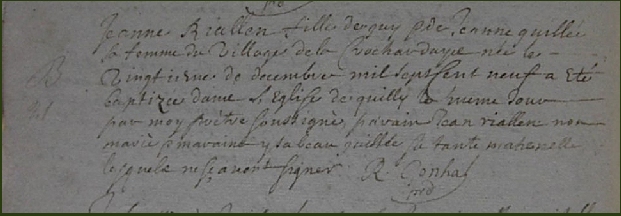 Jeanne Riallen fille de guy & de Jeanne quillée
sa femme du Village de la Rochardaye née le
Vingtiesme de decembre mil sept sent neuf a eté
baptizée dans L'Eglise de quilly le meme jour
par moy prêtre soussigné, parain Jean riallen non
marié & maraine ysabeau quillée sa tante maternelle
lesquels ne sçavent signer R. Conha